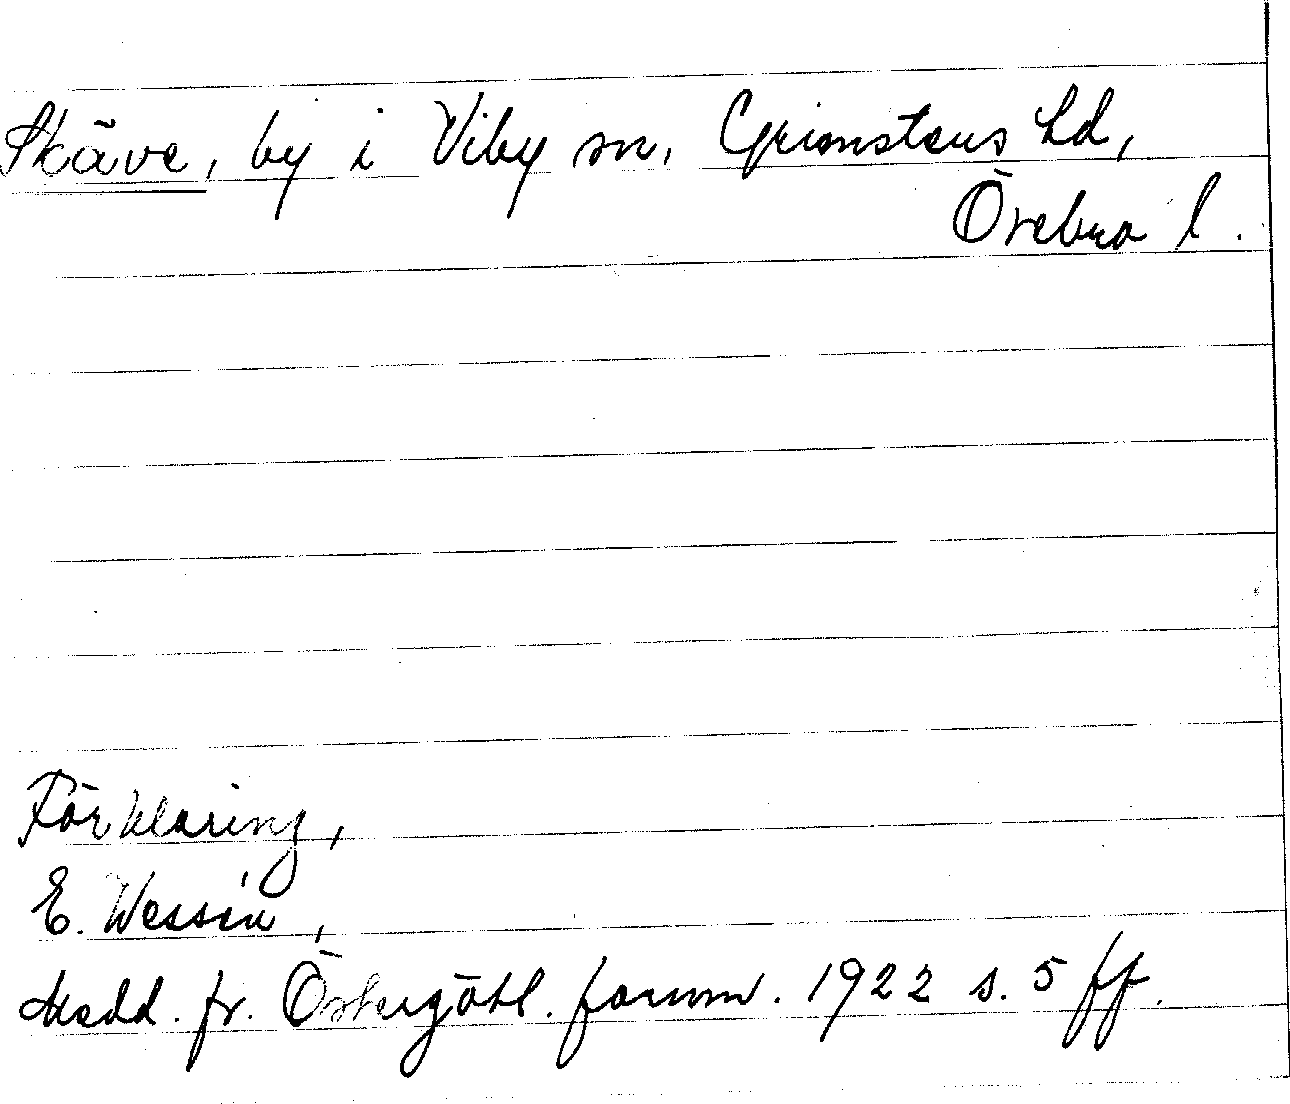 Skäve, by i Viby sn, Grimstens hd,
Örebro l.
Förklaring,
E. Wessén,
Medd. fr. Östergötl. fornm. 1922 s. 5 ff.